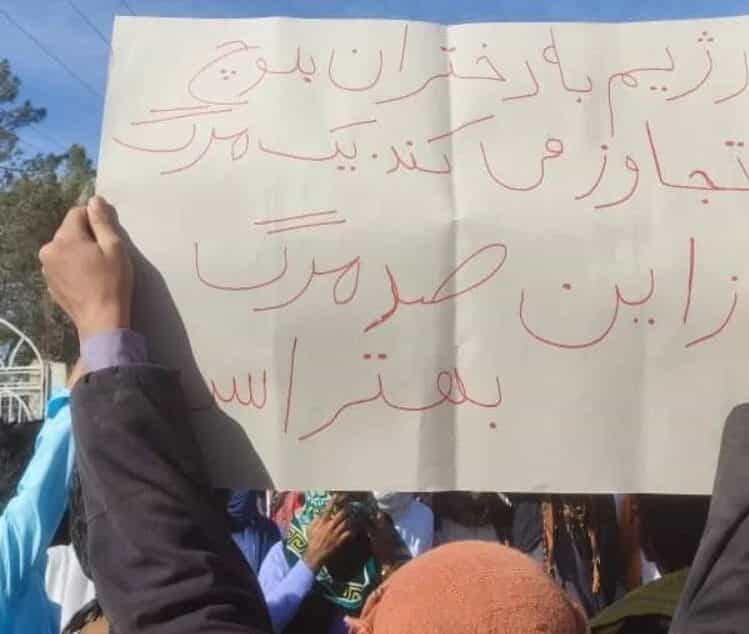 رژیم به دختران بلوچ
تجاوز می کند. یک مرگ
از این صد مرگ
بهتر است